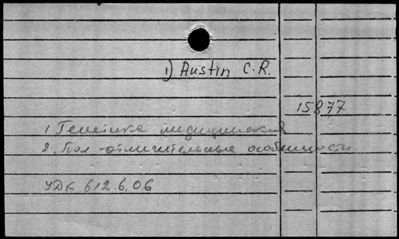 1) Austin C.R.
15877
1. Генетика медицинская
2. Пол - отличительные особенности
УДК 612.6.06